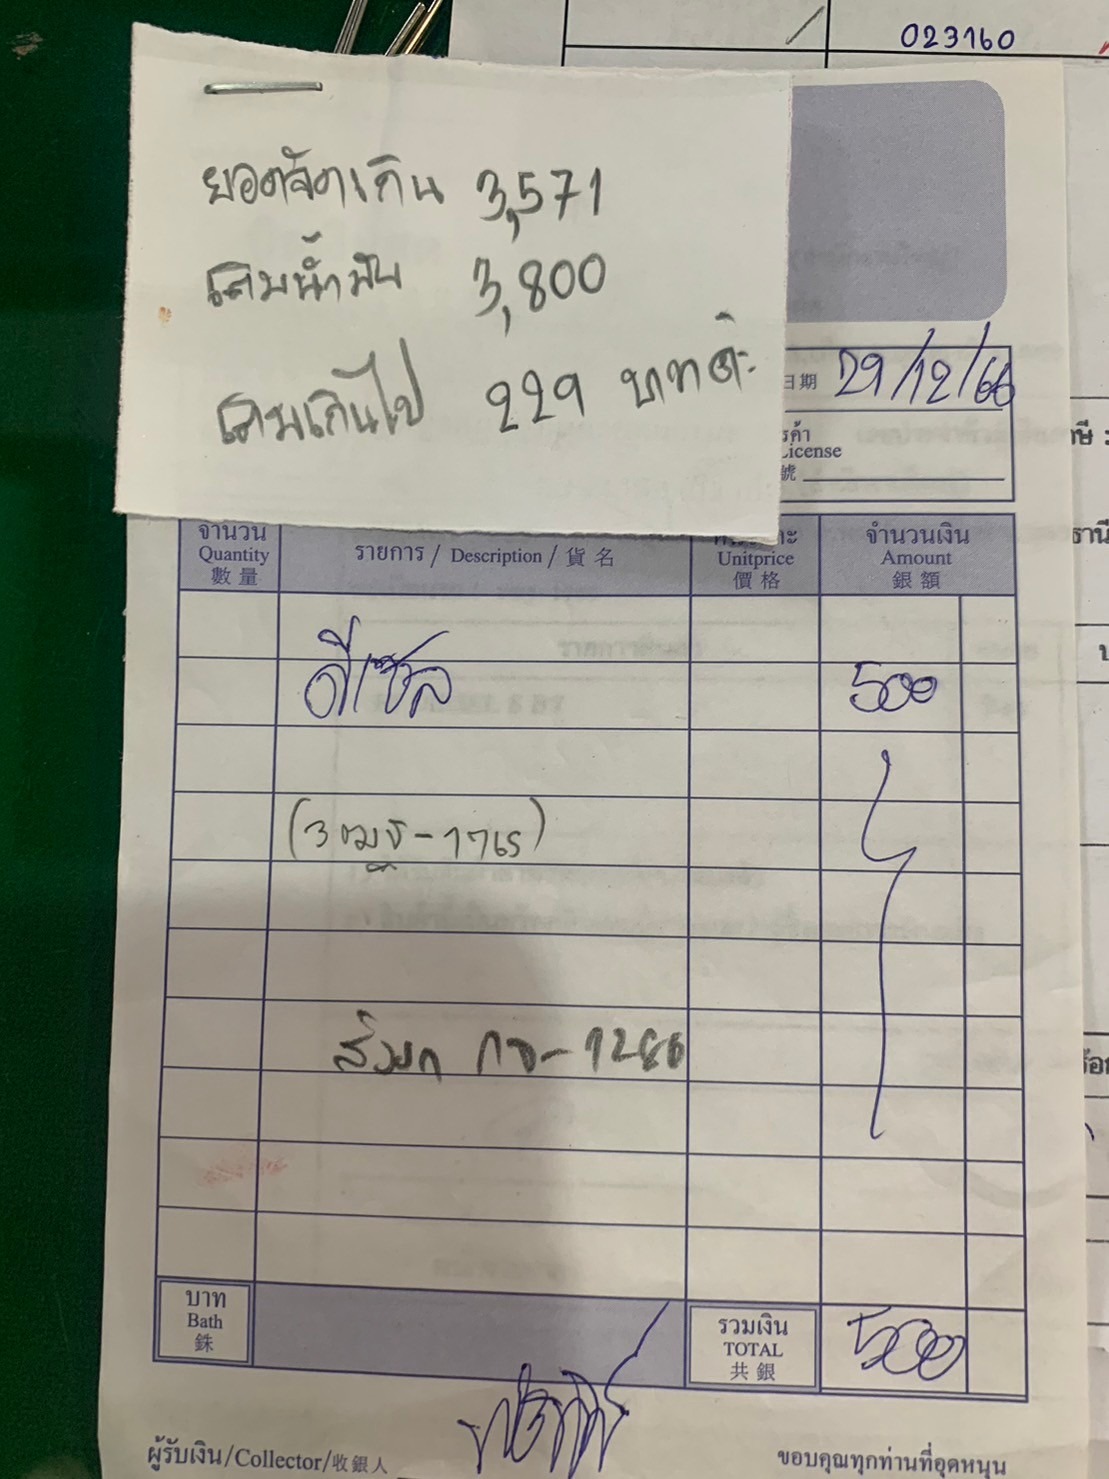 023160
ยอดจัดเกิน 3,571
เติมน้ำมัน 3,800
เติมเกินไป 229 บาทค่ะ
日期 29/12/66
License
號
จำนวน
Quantity
數量
รายการ / Description / 貨名
Unitprice
價格
จำนวนเงิน
Amount
銀額
ดีเซล 500
(3ฒช-1765)
สิบยก กจ-1286
บาท
Bath
銖
รวมเงิน
TOTAL
共銀
500
ผู้รับเงิน/Collector/收銀人
ขอบคุณทุกท่านที่อุดหนุน